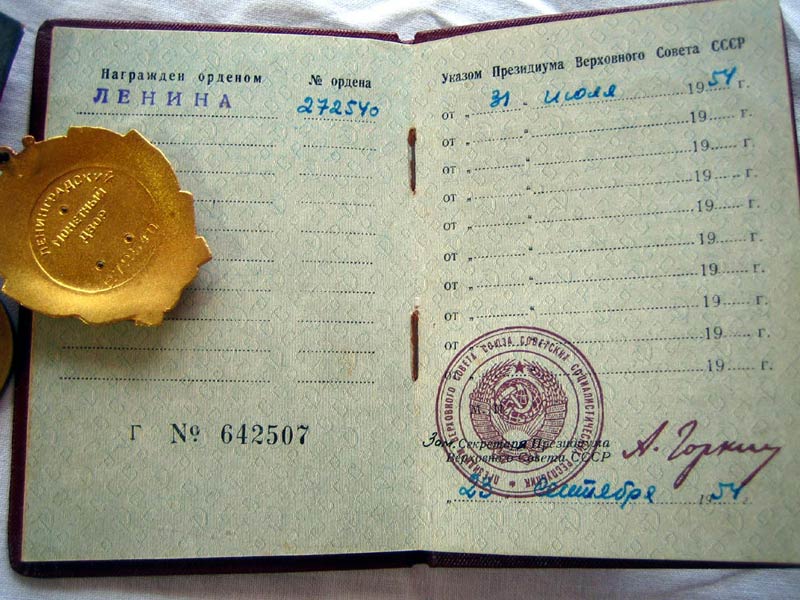 Награжден орденом
№ ордена
ЛЕНИНА
272540
Г № 642507
ЛЕНИНГРАДСКИЙ
МОНЕТНЫЙ
ДВОР
Указом Президиума Верховного Совета СССР
от „ 31 “ июля 1954 г.
от „ “ 19 г.
от „ “ 19 г.
от „ “ 19 г.
от „ “ 19 г.
от „ “ 19 г.
от „ “ 19 г.
от „ “ 19 г.
от „ “ 19 г.
от 19 г.
ПРЕЗИДИУМ ВЕРХОВНОГО СОВЕТА СОЮЗА СОВЕТСКИХ СОЦИАЛИСТИЧЕСКИХ РЕСПУБЛИК
М. П.
Зам. Секретаря Президиума
Верховного Совета СССР
А. Горкин
„ 23 сентября 1954 г.